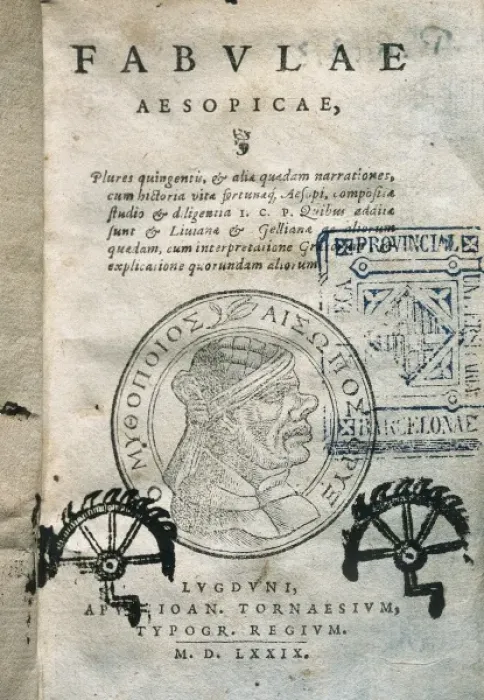 FABVLAE
AESOPICAE,
Plures quingentis, & aliæ quædam narrationes,
cum historia vitæ fortunæq́; Aesopi, compositæ
studio & diligentia I. C. P. Quibus additæ
sunt & Liuianæ & Gellianæ ac aliorum
quædam, cum interpretatione
explicatione quorundam aliorum
PROVINCIAL
BARCELONAE
Ο ΜΥΘΟΠΟΙΟΣ ΑΙΣΩΠΟΣ ΦΡΥΞ
LVGDVNI,
IOAN. TORNAESIVM,
TYPOGR. REGIVM.
M. D. LXXIX.